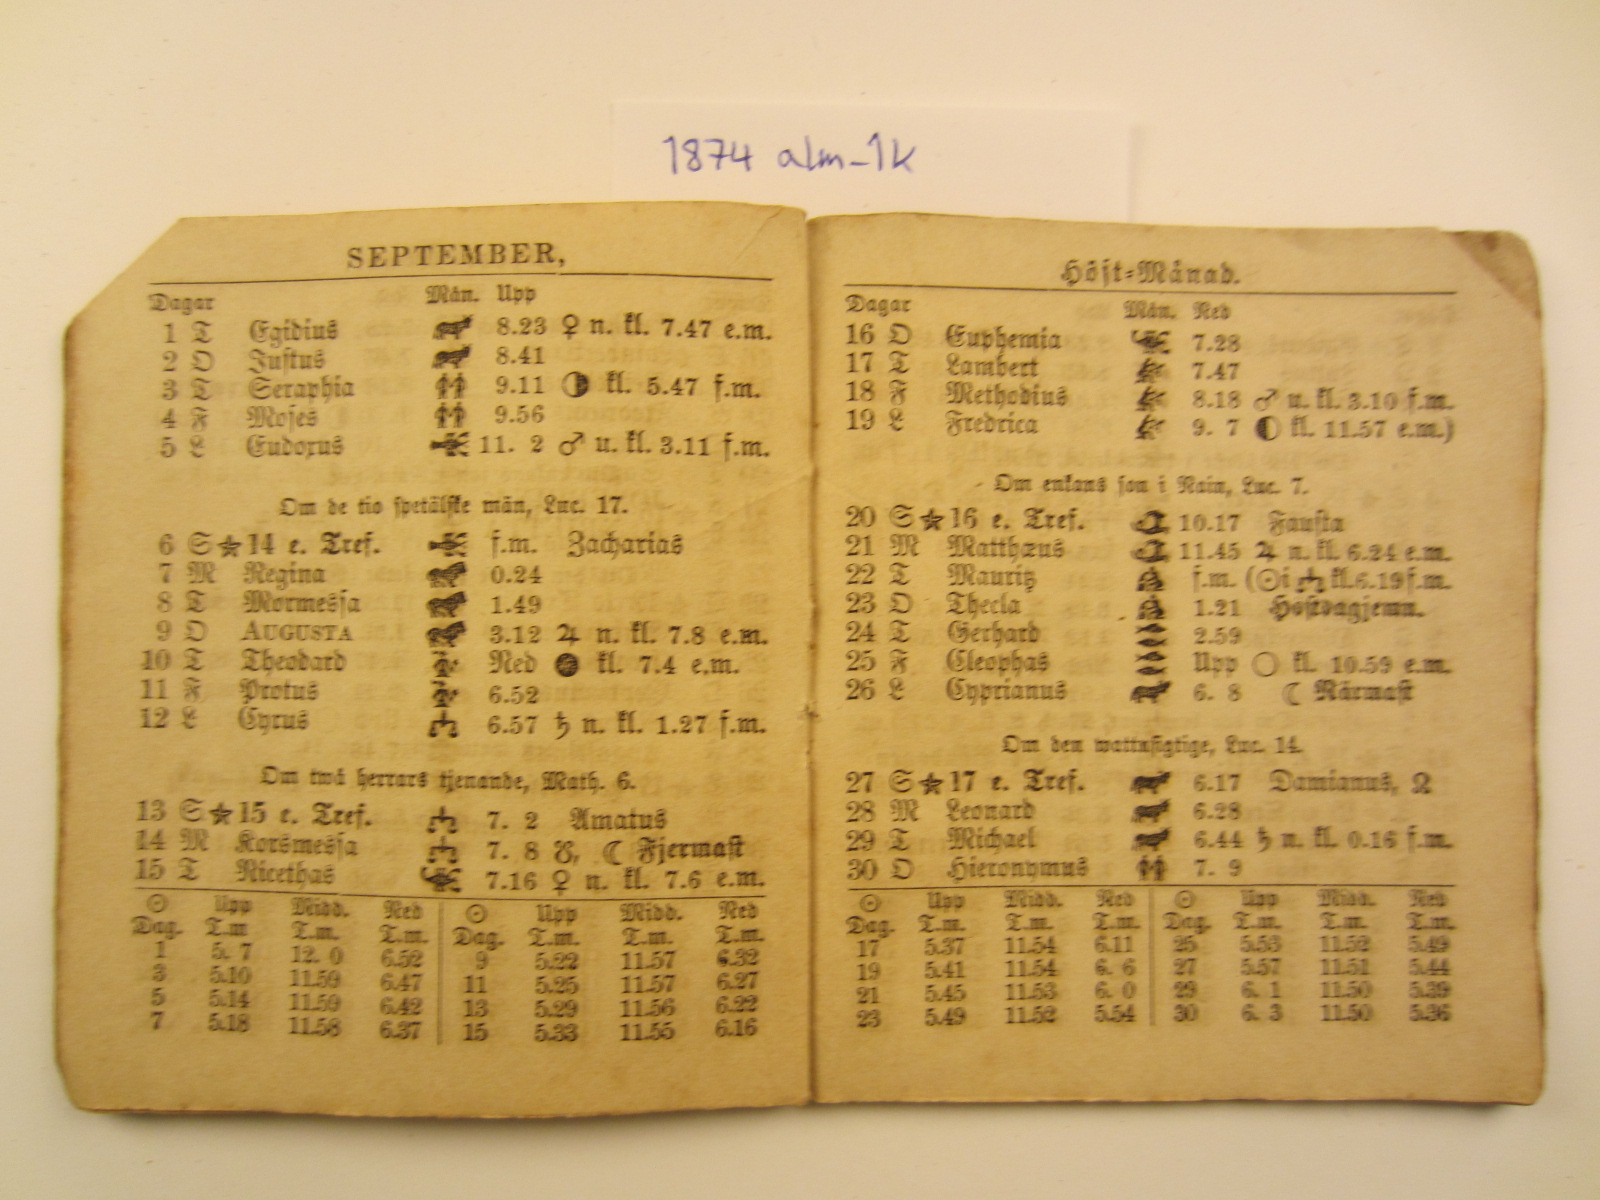 1874 alm-1k
SEPTEMBER,
Dagar Mån. Upp
1 T Egidius 8.23 ♀ n. kl. 7.47 e.m.
2 O Justus 8.41
3 T Seraphia 9.11 kl. 5.47 f.m.
4 F Moses 9.56
5 L Eudoxus 11. 2 ♂ u. kl. 3.11 f.m.
Om de tio spetälske män, Luc. 17.
6 S ★ 14 e. Tref. f.m. Zacharias
7 M Regina 0.24
8 T Mormessa 1.49
9 O AUGUSTA 3.12 ♃ n. kl. 7.8 e.m.
10 T Theodard Ned kl. 7.4 e.m.
11 F Protus 6.52
12 L Cyrus 6.57 ♄ n. kl. 1.27 f.m.
Om twå herrars tjenande, Math. 6.
13 S ★ 15 e. Tref. 7. 2 Amatus
14 M Korsmessa 7. 8 ☋, ☾ Fjermast
15 T Nicethas 7.16 ♀ n. kl. 7.6 e.m.
☉ Upp Midd. Ned ☉ Upp Midd. Ned
Dag. T.m T.m. T.m. Dag. T.m. T.m. T.m.
1 5. 7 12. 0 6.52 9 5.22 11.57 6.32
3 5.10 11.59 6.47 11 5.25 11.57 6.27
5 5.14 11.59 6.42 13 5.29 11.56 6.22
7 5.18 11.58 6.37 15 5.33 11.55 6.16
Höst-Månad.
Dagar Mån. Ned
16 O Euphemia 7.28
17 T Lambert 7.47
18 F Methodius 8.18 ♂ u. kl. 3.10 f.m.
19 L Fredrica 9. 7 kl. 11.57 e.m.)
Om enkans son i Nain, Luc. 7.
20 S ★ 16 e. Tref. 10.17 Fausta
21 M Matthæus 11.45 ♃ n. kl 6.24 e.m.
22 T Mauritz f.m. (☉ i ♎ kl.6.19 f.m.
23 O Thecla 1.21 Höstdagjemn.
24 T Gerhard 2.59
25 F Cleophas Upp ○ kl. 10.59 e.m.
26 L Cyprianus 6. 8 ☾ Närmast
Om den wattusigtige, Luc. 14.
27 S ★ 17 e. Tref. 6.17 Damianus, ☊
28 M Leonard 6.28
29 T Michael 6.44 ♄ n. kl. 0.16 f.m.
30 O Hieronymus 7. 9
☉ Upp Midd. Ned ☉ Upp Midd. Ned
Dag. T.m. T.m. T.m. Dag. T.m. T.m. T.m.
17 5.37 11.54 6.11 25 5.53 11.52 5.49
19 5.41 11.54 6. 6 27 5.57 11.51 5.44
21 5.45 11.53 6. 0 29 6. 1 11.50 5.39
23 5.49 11.52 5.54 30 6. 3 11.50 5.36